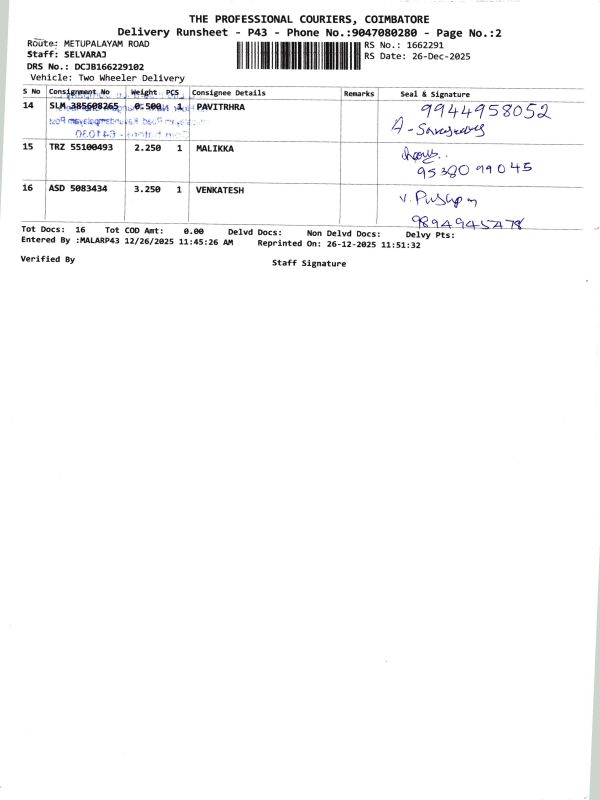 THE PROFESSIONAL COURIERS, COIMBATORE
Delivery Runsheet - P43 - Phone No.:9047080280 - Page No.:2
Route: METUPALAYAM ROAD
RS No.: 1662291
Staff: SELVARAJ
RS Date: 26-Dec-2025
DRS No.: DCJB166229102
Vehicle: Two Wheeler Delivery
S No Consignment No Weight PCS Consignee Details Remarks Seal & Signature
14 SLM 385608265 0.500 1 PAVITRHRA 9944958052
15 TRZ 55100493 2.250 1 MALIKKA
95380 99045
16 ASD 5083434 3.250 1 VENKATESH V. Pushpa
9894945478
Tot Docs: 16 Tot COD Amt: 0.00 Delvd Docs: Non Delvd Docs: Delvy Pts:
Entered By :MALARP43 12/26/2025 11:45:26 AM Reprinted On: 26-12-2025 11:51:32
Verified By Staff Signature